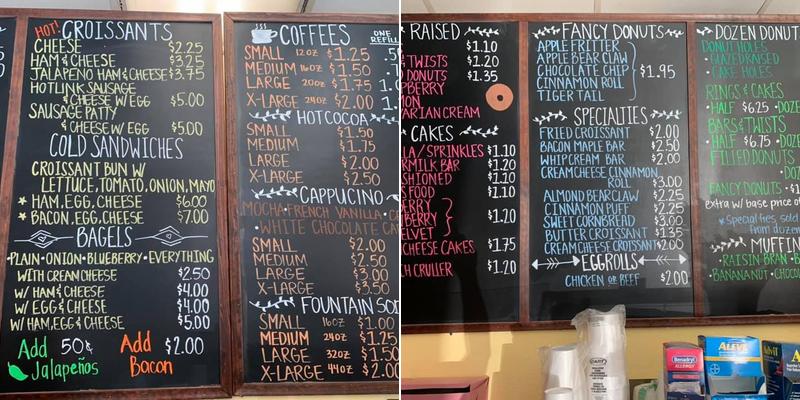 HOT! CROISSANTS
CHEESE $2.25
HAM & CHEESE $3.25
JALAPENO HAM & CHEESE $3.75
HOTLINK SAUSAGE
& CHEESE W/ EGG $5.00
SAUSAGE PATTY
& CHEESE W/ EGG $5.00
COLD SANDWICHES
CROISSANT BUN W/
LETTUCE, TOMATO, ONION, MAYO
* HAM, EGG, CHEESE $6.00
* BACON, EGG, CHEESE $7.00
BAGELS
PLAIN • ONION • BLUEBERRY • EVERYTHING
WITH CREAM CHEESE $2.50
W/ HAM & CHEESE $4.00
W/ EGG & CHEESE $4.00
W/ HAM, EGG & CHEESE $5.00
Add 50¢ Jalapeños
Add Bacon $2.00
COFFEES ONE REFILL
SMALL 12oz $1.25 .5
MEDIUM 16oz $1.50
LARGE 20oz $1.75 1.
X-LARGE 24oz $2.00 1.
HOT COCOA
SMALL $1.50
MEDIUM $1.75
LARGE $2.00
X-LARGE $2.50
CAPPUCINO
MOCHA • FRENCH VANILLA •
• WHITE CHOCOLATE CA
SMALL $2.00
MEDIUM $2.50
LARGE $3.00
X-LARGE $3.50
FOUNTAIN SO
SMALL 16oz $1.00
MEDIUM 24oz $1.25
LARGE 32oz $1.50
X-LARGE 44oz $2.00
RAISED
$1.10
TWISTS $1.20
DONUTS $1.35
PBERRY
MON
ARIAN CREAM
CAKES
LA / SPRINKLES $1.10
RMILK BAR $1.20
SHIONED $1.10
S FOOD $1.10
ERRY
BERRY $1.20
ELVET
CHEESE CAKES $1.75
CH CRULLER $1.20
FANCY DONUTS
APPLE FRITTER
APPLE BEAR CLAW
CHOCOLATE CHIP $1.95
CINNAMON ROLL
TIGER TAIL
SPECIALTIES
FRIED CROISSANT $2.00
BACON MAPLE BAR $2.50
WHIP CREAM BAR $2.00
CREAM CHEESE CINNAMON
ROLL $3.00
ALMOND BEAR CLAW $2.25
CINNAMON PUFF $2.25
SWEET CORNBREAD $3.00
BUTTER CROISSANT $1.35
CREAM CHEESE CROISSANT $2.00
EGGROLLS
CHICKEN OR BEEF $2.00
DOZEN DONUT
DONUT HOLES
• GLAZED RAISED
• CAKE HOLES
RINGS & CAKES
• HALF $6.25 • DOZ
BARS & TWISTS
• HALF $6.75 • DOZE
FILLED DONUTS
DOZ
FANCY DONUTS • $1
Extra w/ base price o
*Special ties, sold
from dozen
MUFFIN
• RAISIN BRAN • B
• BANANA NUT • CHOCO
Benadryl
ALLERGY
ALEVE
Advil